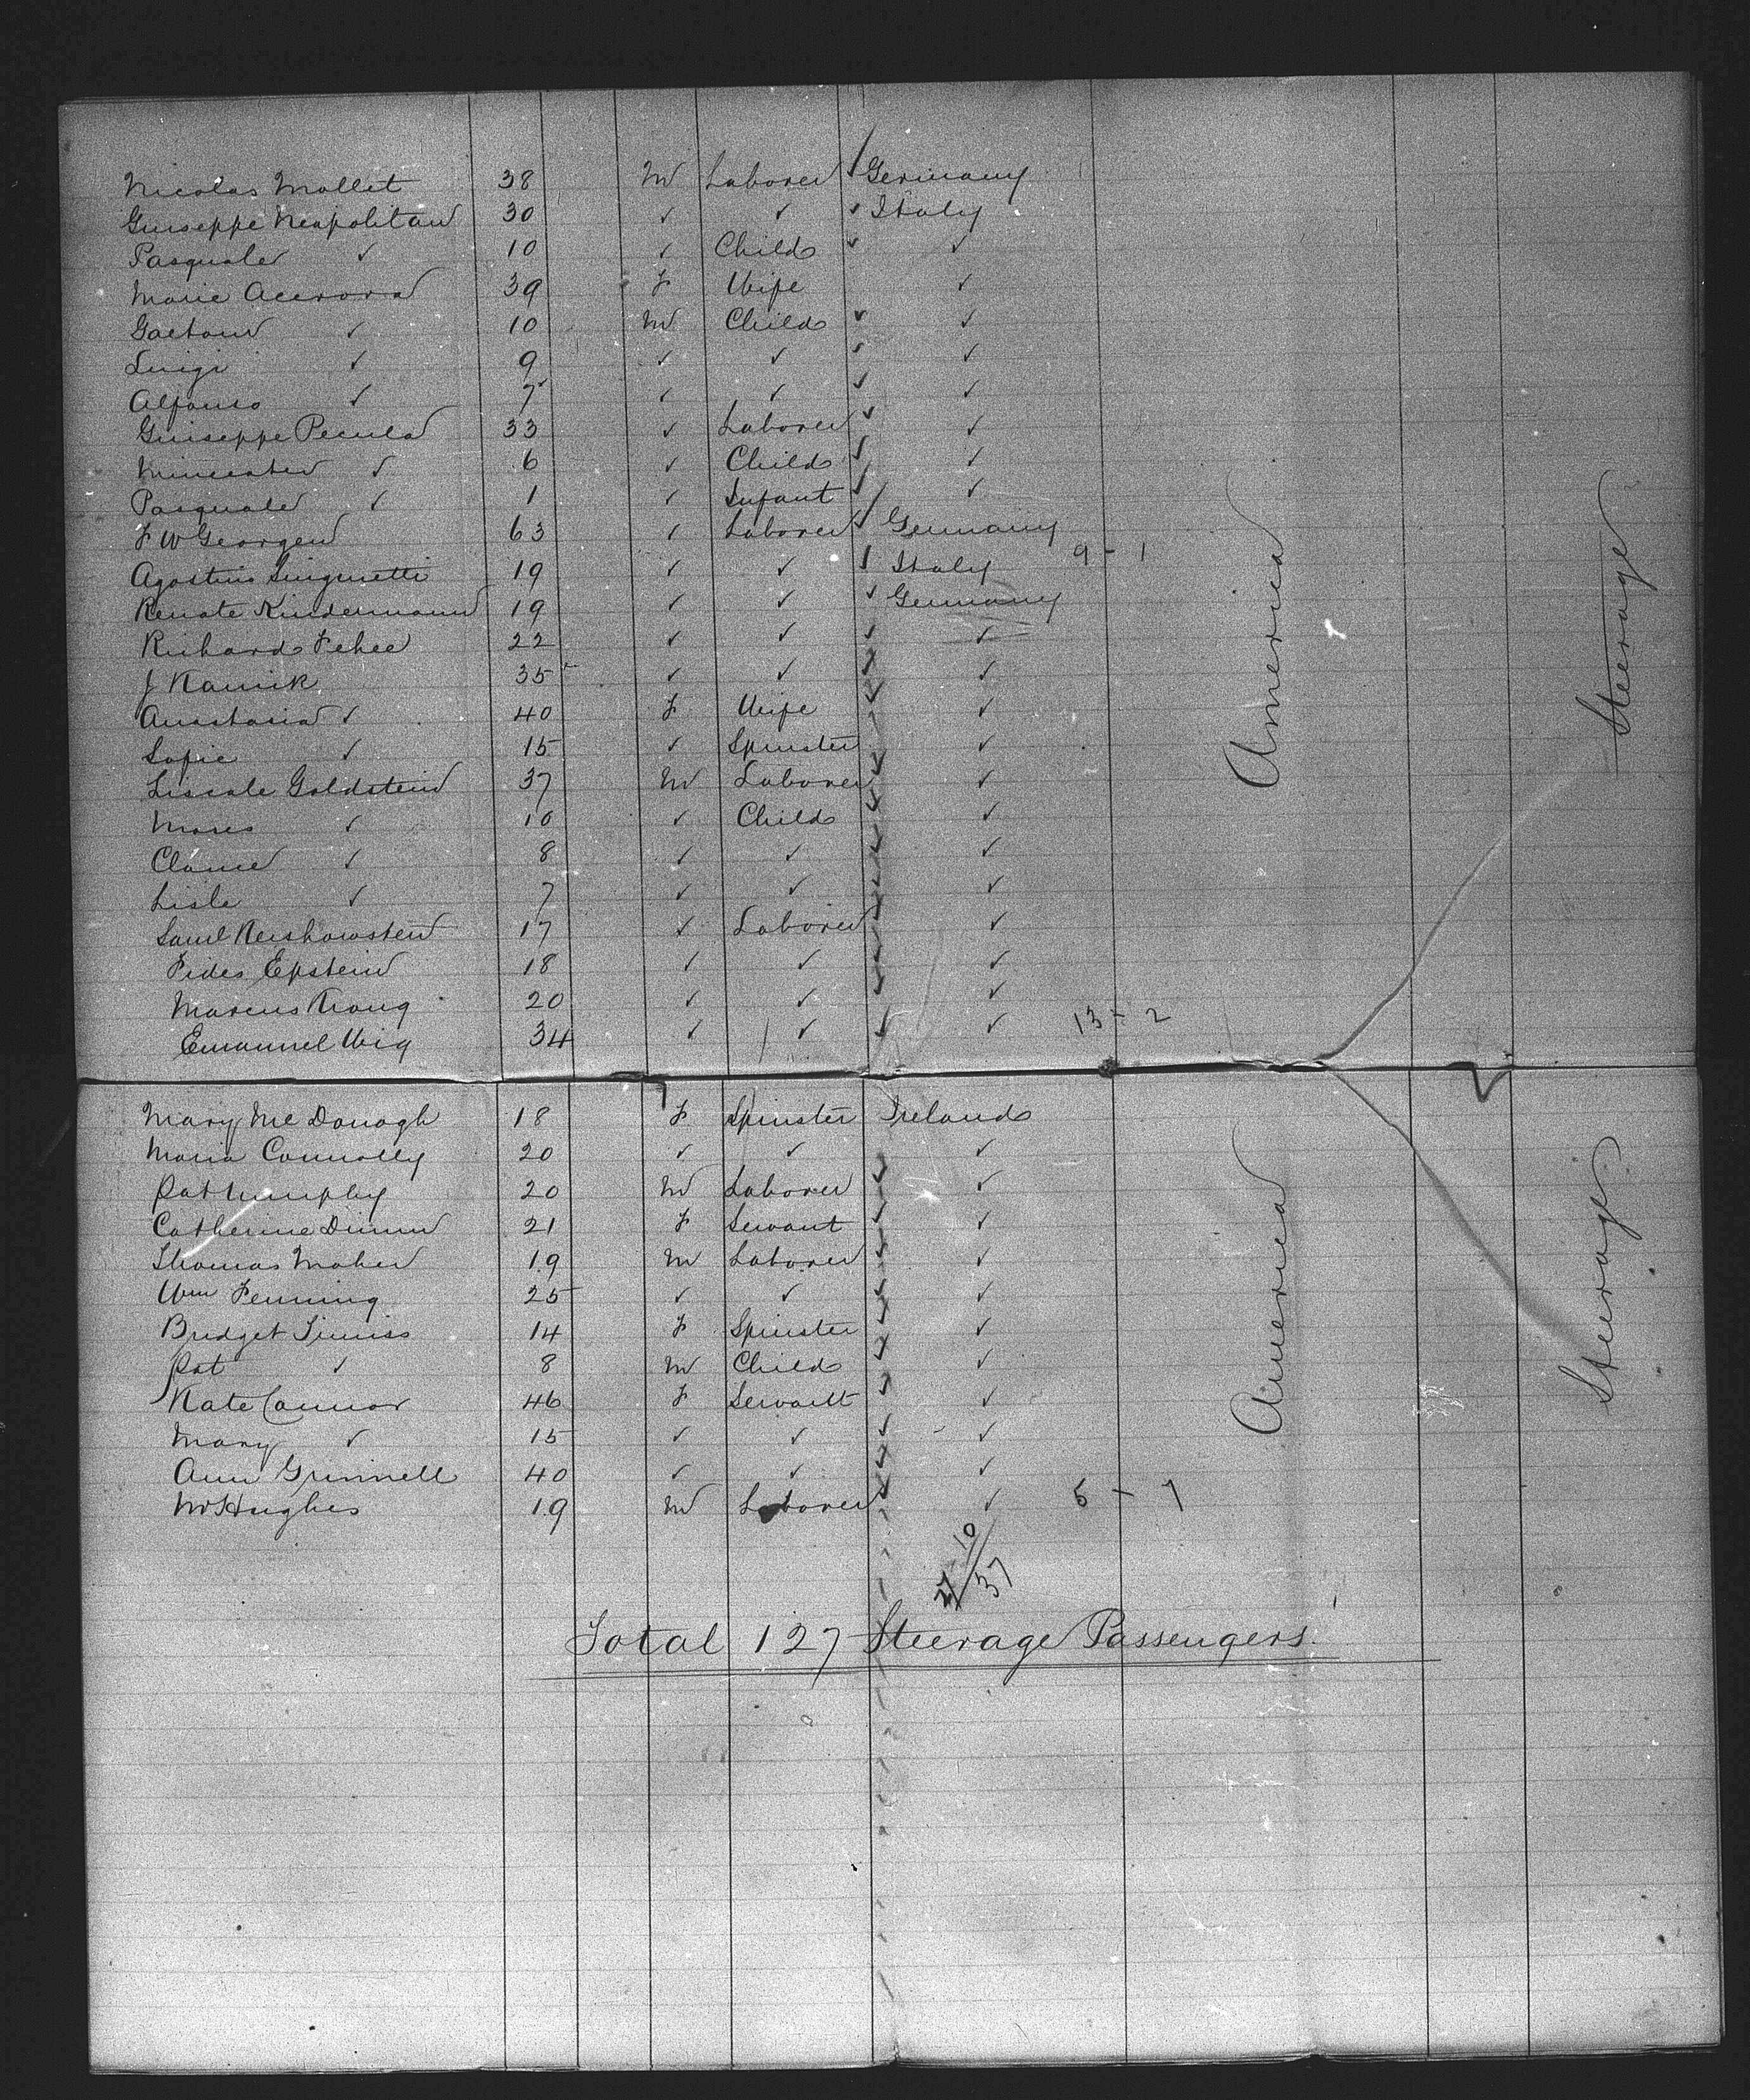 Nicolas Mollet 38 M Laborer Germany
Guiseppe Neapolitan 30 ✓ ✓ Italy
Pasquale ✓ 10 ✓ Child ✓
Marie Acerora 39 F Wife ✓
Gaetano ✓ 10 M Child ✓
Luigi ✓ 9 ✓ ✓ ✓
Alfonso ✓ 7 ✓ ✓ ✓
Guiseppe Pecula 33 ✓ Laborer ✓
✓ 6 ✓ Child ✓
Pasquale ✓ 1 ✓ Infant ✓
F W Georgen 63 ✓ Laborer Germany
Agostino 19 ✓ ✓ Italy 9 - 1
Renate Kindermann 19 ✓ ✓ Germany
Richard Fehee 22 ✓ ✓ ✓
J Kamik 35 ✓ ✓ ✓
Anastasia ✓ 40 F Wife ✓
Sofie ✓ 15 ✓ Spinster ✓
Goldstein 37 M Laborer ✓
Moses ✓ 10 ✓ Child ✓
✓ 8 ✓ ✓ ✓
Lisle ✓ 7 ✓ ✓ ✓
Saml 17 ✓ Laborer ✓
Fides Epstein 18 ✓ ✓ ✓
Marcus 20 ✓ ✓ ✓
Emanuel 34 ✓ ✓ ✓ 13 - 2
America
Steerage
Mary McDonagh 18 F Spinster Ireland
Maria Connolly 20 ✓ ✓ ✓
Pat 20 M Laborer ✓
Catherine 21 F Servant ✓
Thomas Maher 19 M Laborer ✓
Wm Fenning 25 ✓ ✓ ✓
Bridget Timiss 14 F Spinster ✓
Pat ✓ 8 M Child ✓
Kate Connor 46 F Servant ✓
Mary ✓ 15 ✓ ✓ ✓
Ann Grinnell 40 ✓ ✓ ✓
M Hughes 19 M Laborer ✓ 5 - 7
America
Steerage
27 / 10
37
Total 127 Steerage Passengers